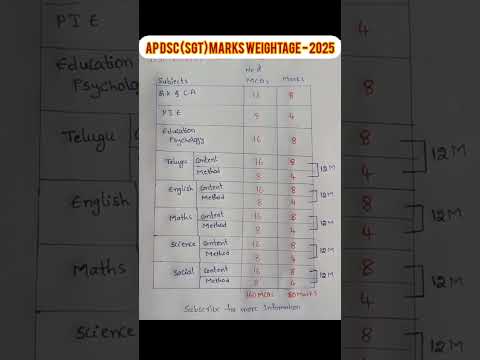 AP DSC (SGT) MARKS WEIGHTAGE - 2025
Subjects No.of MCQs Marks
G.K & C.A 16 8
PIE 8 4
Education Psychology 16 8
Telugu Content 16 8
Method 8 4 12M
English Content 16 8
Method 8 4 12M
Maths Content 16 8
Method 8 4 12M
Science Content 16 8
Method 8 4 12M
Social Content 16 8
Method 8 4 12M
160 MCQs 80 Marks
Subscribe for more Information
PIE
Education
Psychology
Telugu
English
Maths
Science
4
8
8
4
12M
8
4
12M
8
4
12M
8
12M